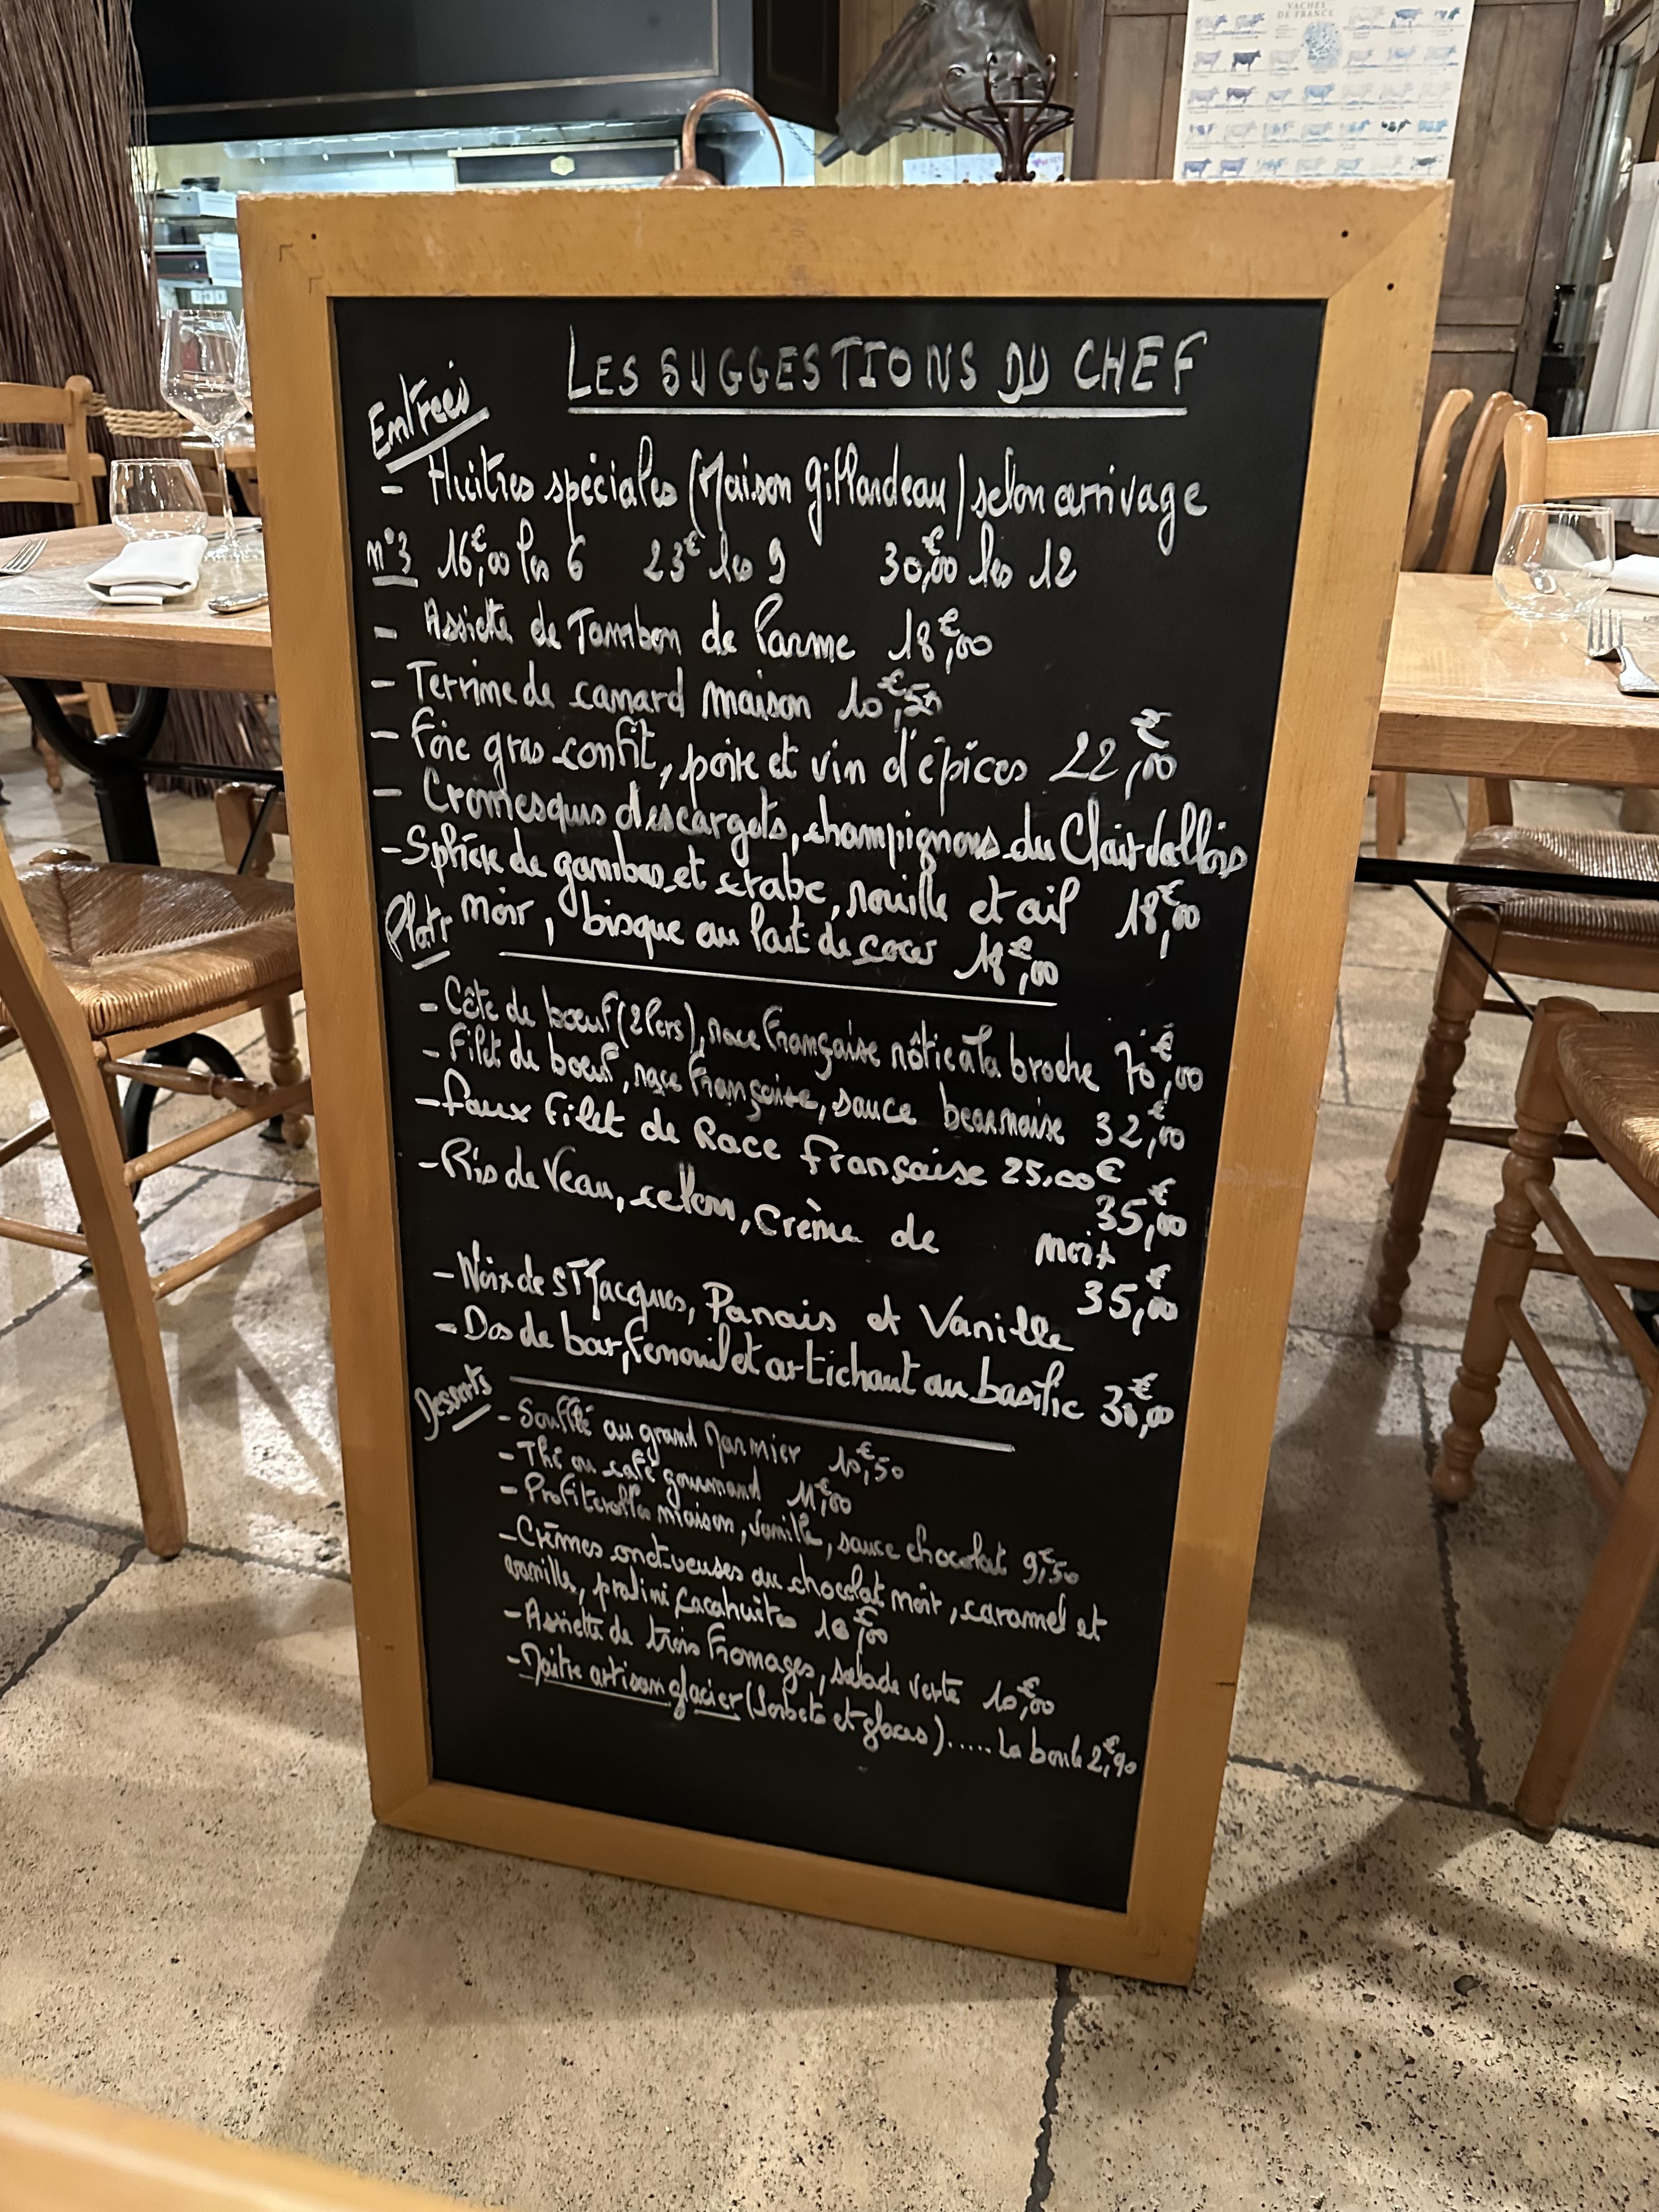 VACHES
DE FRANCE
LES SUGGESTIONS DU CHEF
Entrées
- Huîtres spéciales (Maison Gillardeau) selon arrivage
n°3 16€,00 les 6 23€ les 9 30€,00 les 12
- Assiette de Jambon de Parme 18€,00
- Terrine de canard maison 10€,50
- Foie gras confit, poire et vin d'épices 22€,00
- Cromesquis d'escargots, champignons du Clair
18€,00
- Sphère de gambas et crabe, nouille et ail
noir, bisque au lait de coco 18€,00
Plats
- Côte de bœuf (2 Pers), race Française rôtie à la broche 70€,00
- Filet de bœuf, race Française, sauce bearnaise 32€,00
- Faux Filet de Race Française 25,00€
- Ris de Veau, Crème de noix 35€,00
- Noix de ST Jacques, Panais et Vanille 35€,00
- Dos de bar, fenouil et artichaut au basilic 30€,00
Desserts
- Soufflé au grand Marnier 10€,50
- Thé ou café gourmand 11€,00
- Profiterolles maison, vanille, sauce chocolat 9€,50
- Crèmes onctueuses au chocolat noir, caramel et
vanille, praliné cacahuètes 10€,00
- Assiette de trois Fromages, salade verte 10€,00
- Maitre artisan glacier (Sorbets et glaces)..... La boule 2€,90